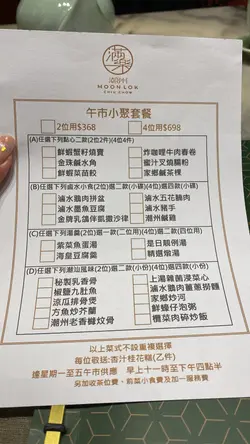 滿樂
潮州
MOON LOK
CHIU CHOW
午市小聚套餐
2位用$368 4位用$698
(A)任選下列點心二款(2位2件)(4位4件)
鮮蝦蟹籽燒賣 炸咖喱牛肉春卷
金珠鹹水角 蜜汁叉燒腸粉
鮮蝦菜苗餃 家鄉鹹茶粿
(B)任選下列滷水小食(2位)選二款(小碟)(4位)選四款(小碟)
滷水鵝肉拼盆 滷水五花腩肉
滷水墨魚豆腐 滷水豬手
金牌乳鴿伴凱撒沙律 潮州鹹雞
(C)任選下列湯羹(2位)選一款(二位用)(4位)選二款(四位用)
紫菜魚蛋湯 是日靚例湯
海皇豆腐羹 精選燉湯
(D)任選下列潮汕風味(2位)選二款(小份)(4位)選四款(小份)
秘製乳香骨 上湯雜菌浸菜心
椒鹽九肚魚 滷水鵝肉薑蔥撈麵
涼瓜排骨煲 家鄉炒河
方魚炒芥蘭 鮮蠔仔泡粥
潮州老香櫞炆骨 欖菜肉碎炒飯
以上菜式不設重複選擇
每位敬送:杏汁桂花糕(乙件)
逢星期一至五午市供應 早上十一時至下午四點半
另加收茶位費, 前菜小食費及加一服務費